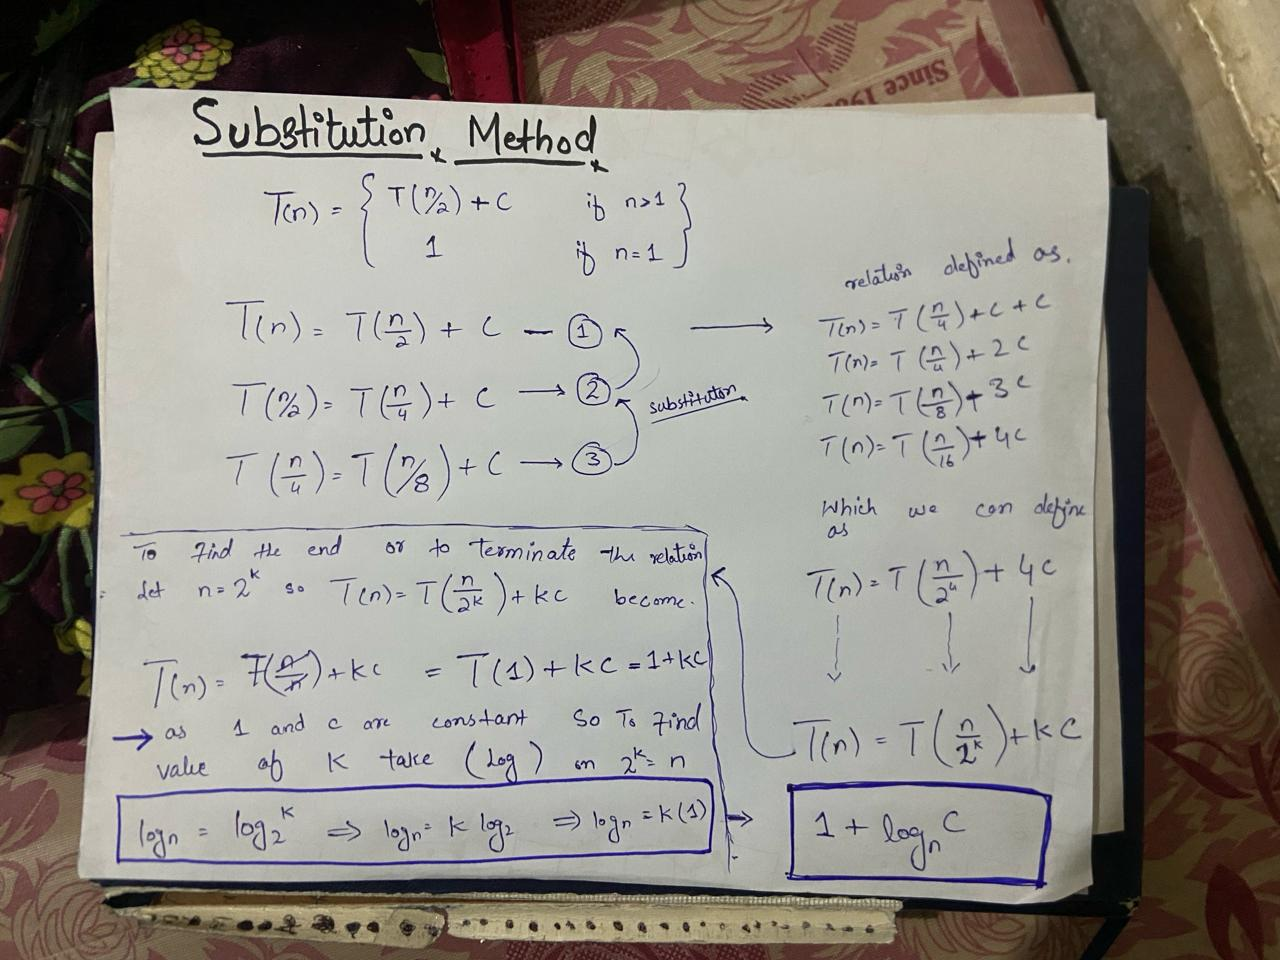 Since 19
Substitution Method
T(n) = { T(n/2) + C if n>1
1 if n=1 }
T(n) = T(n/2) + C — ①
T(n/2) = T(n/4) + C → ②
T(n/4) = T(n/8) + C → ③
substituton
→
relation defined as.
T(n) = T(n/4) + C + C
T(n) = T(n/4) + 2C
T(n) = T(n/8) + 3C
T(n) = T(n/16) + 4C
Which we can define
as
T(n) = T(n/2⁴) + 4C
↓ ↓ ↓
T(n) = T(n/2ᵏ) + kC
To find the end or to terminate the relation
Let n = 2ᵏ so T(n) = T(n/2ᵏ) + kC become.
T(n) = T(n/n) + kC = T(1) + kC = 1 + kC
→ as 1 and c are constant So To find
value of K take (log) on 2ᵏ = n
logn = log2ᵏ ⇒ logn = K log2 ⇒ logn = K(1) →
1 + logn C